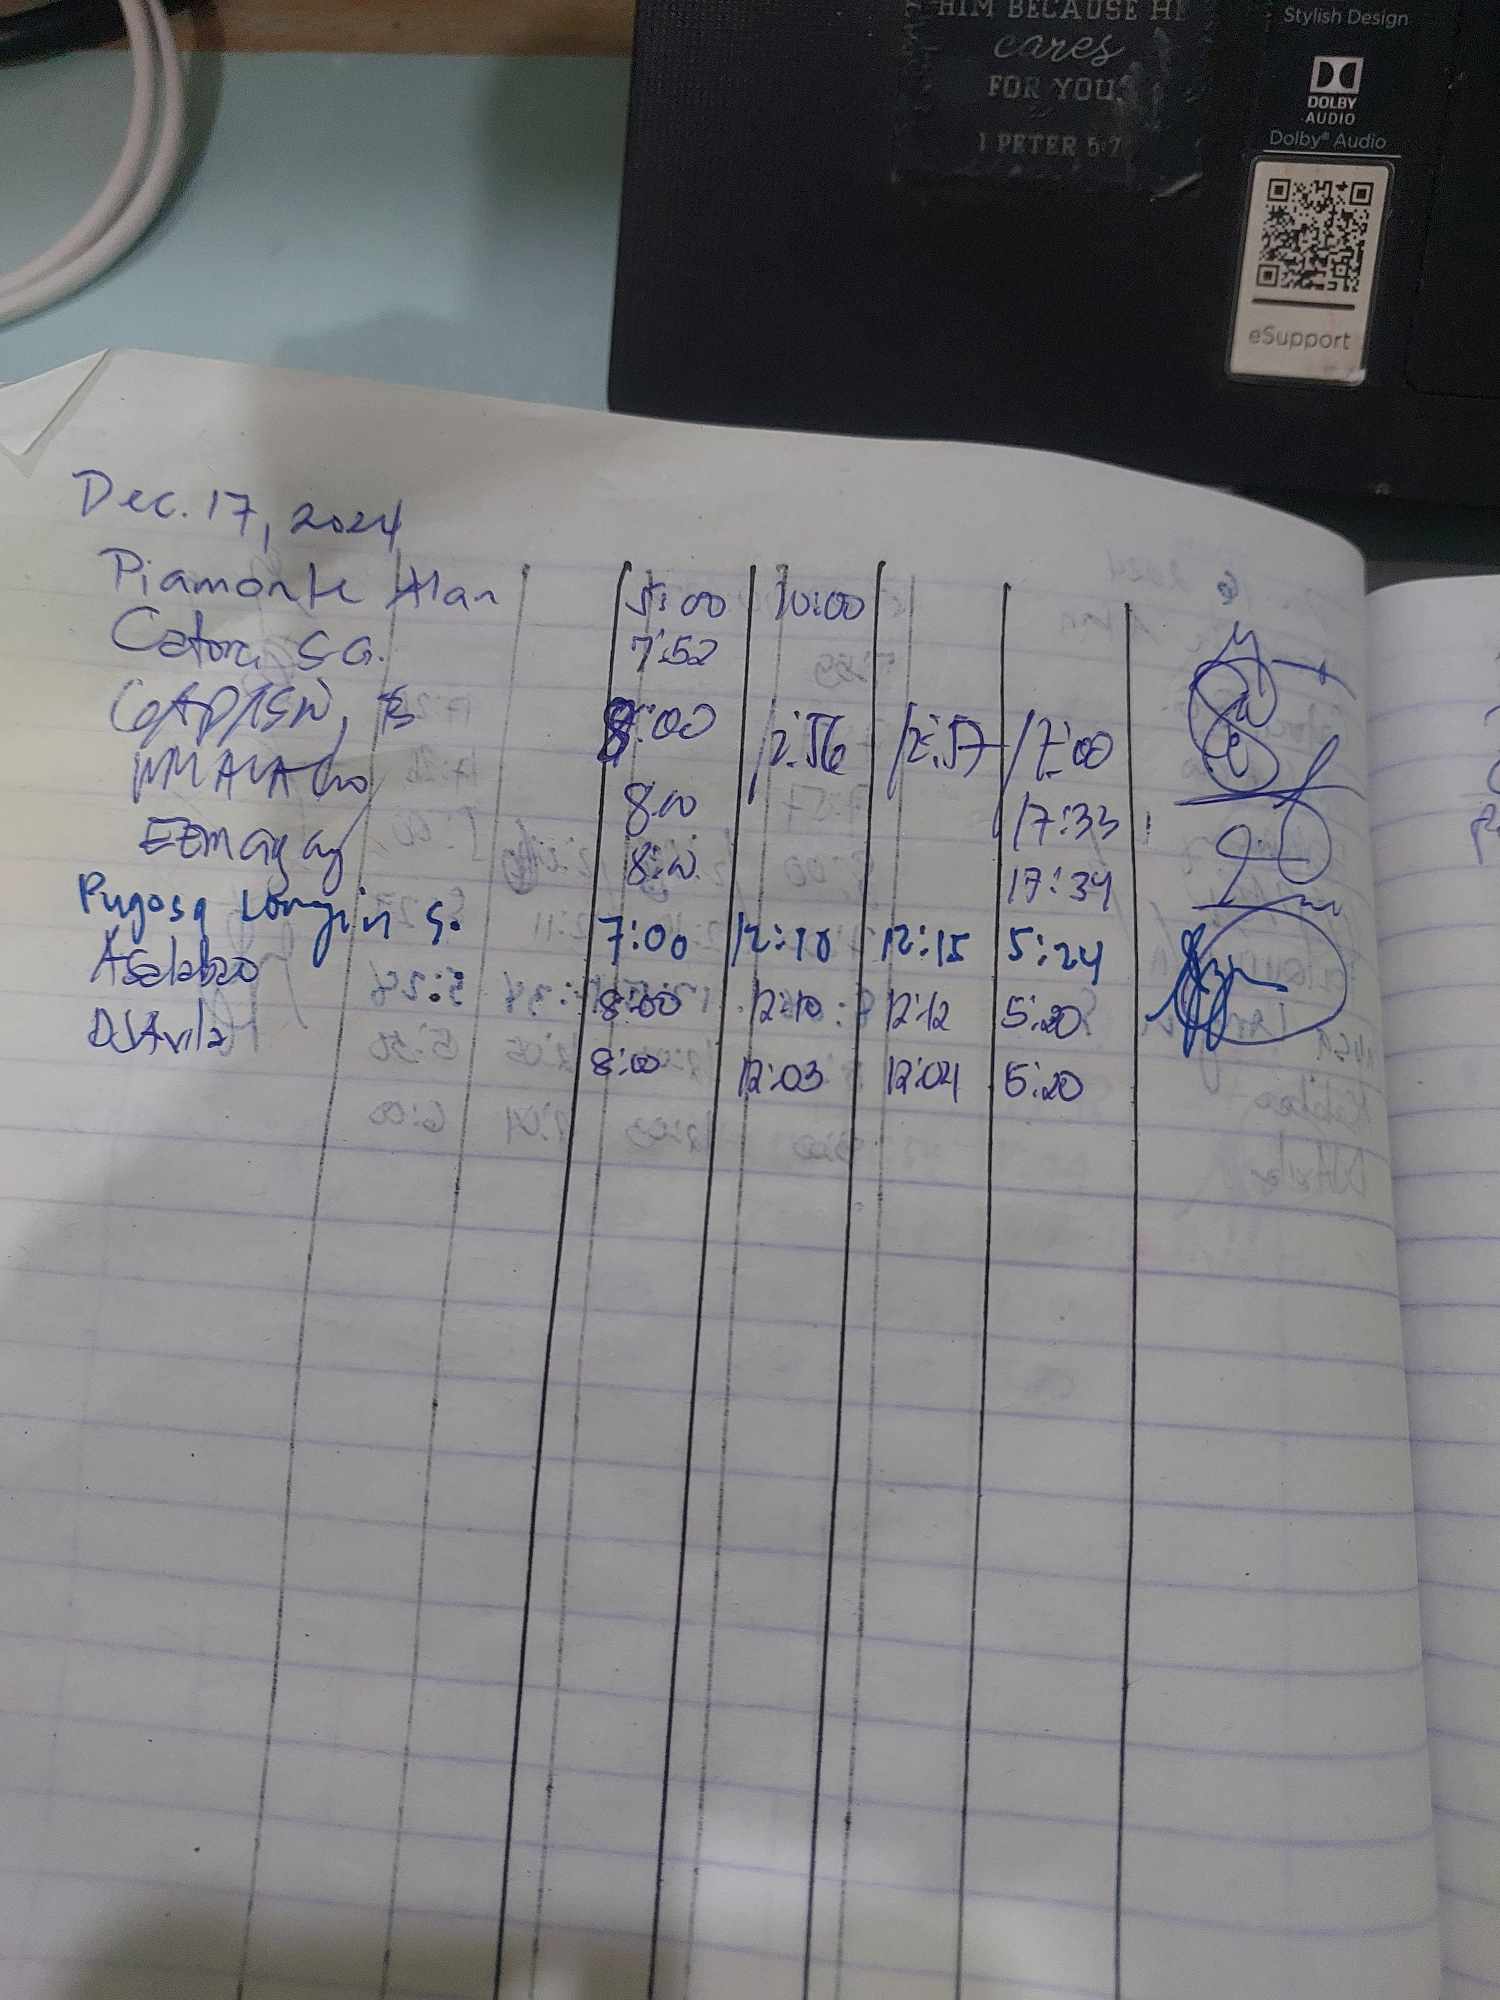 HIM BECAUSE HE
cares
FOR YOU.
1 PETER 5:7
Stylish Design
DOLBY
AUDIO
Dolby® Audio
eSupport
Dec. 17, 2024
Piamonte Alan 5:00 10:00
Catora SG. 7:52
8:00 12:56 12:57 17:00
8:00 17:33
EEMagay 8:00 17:34
Pugosa Longin S. 7:00 12:10 12:15 5:24
Asalabao 8:00 12:10 12:12 5:20
DJAvila 8:00 12:03 12:04 5:20